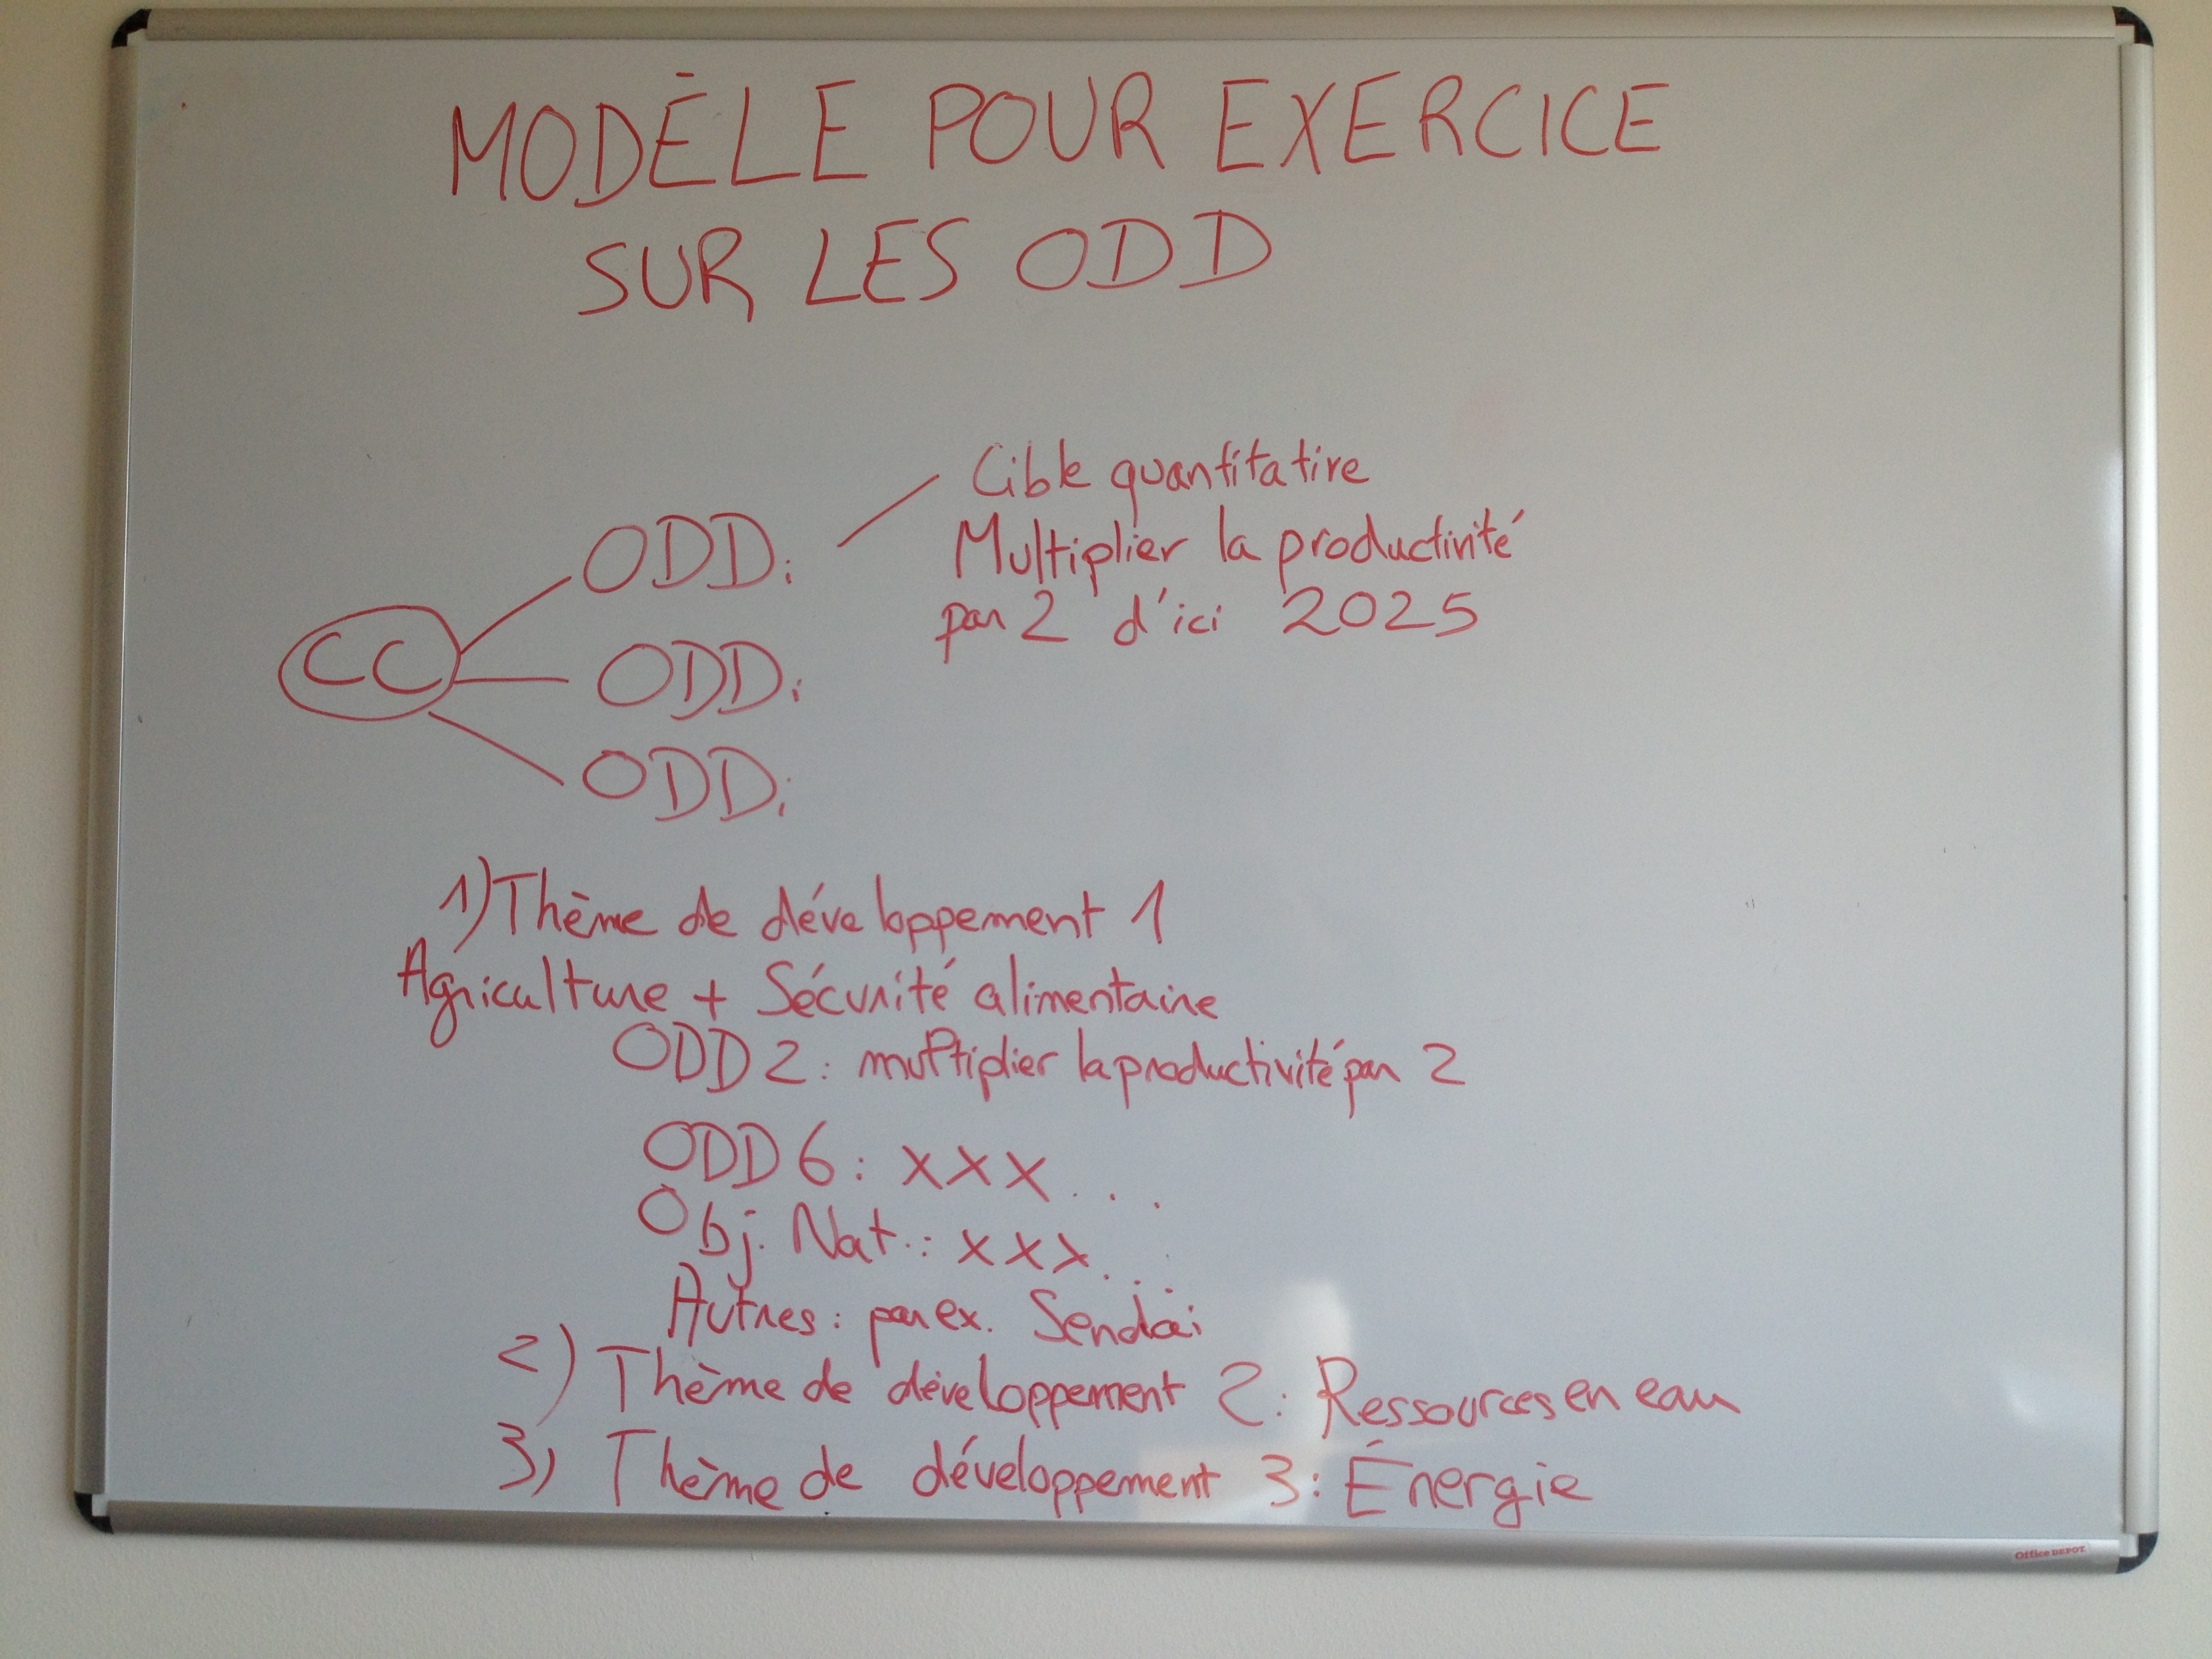 MODÈLE POUR EXERCICE
SUR LES ODD
Cible quantitative
ODDi
Multiplier la productivité
par 2 d'ici 2025
CC
ODDi
ODDi
1) Thème de développement 1
Agriculture + Sécurité alimentaire
ODD 2: multiplier la productivité par 2
ODD 6: xxx...
Obj. Nat.: xxx...
Autres: par ex. Sendai
2) Thème de développement 2: Ressources en eau
3) Thème de développement 3: Énergie
Office DEPOT